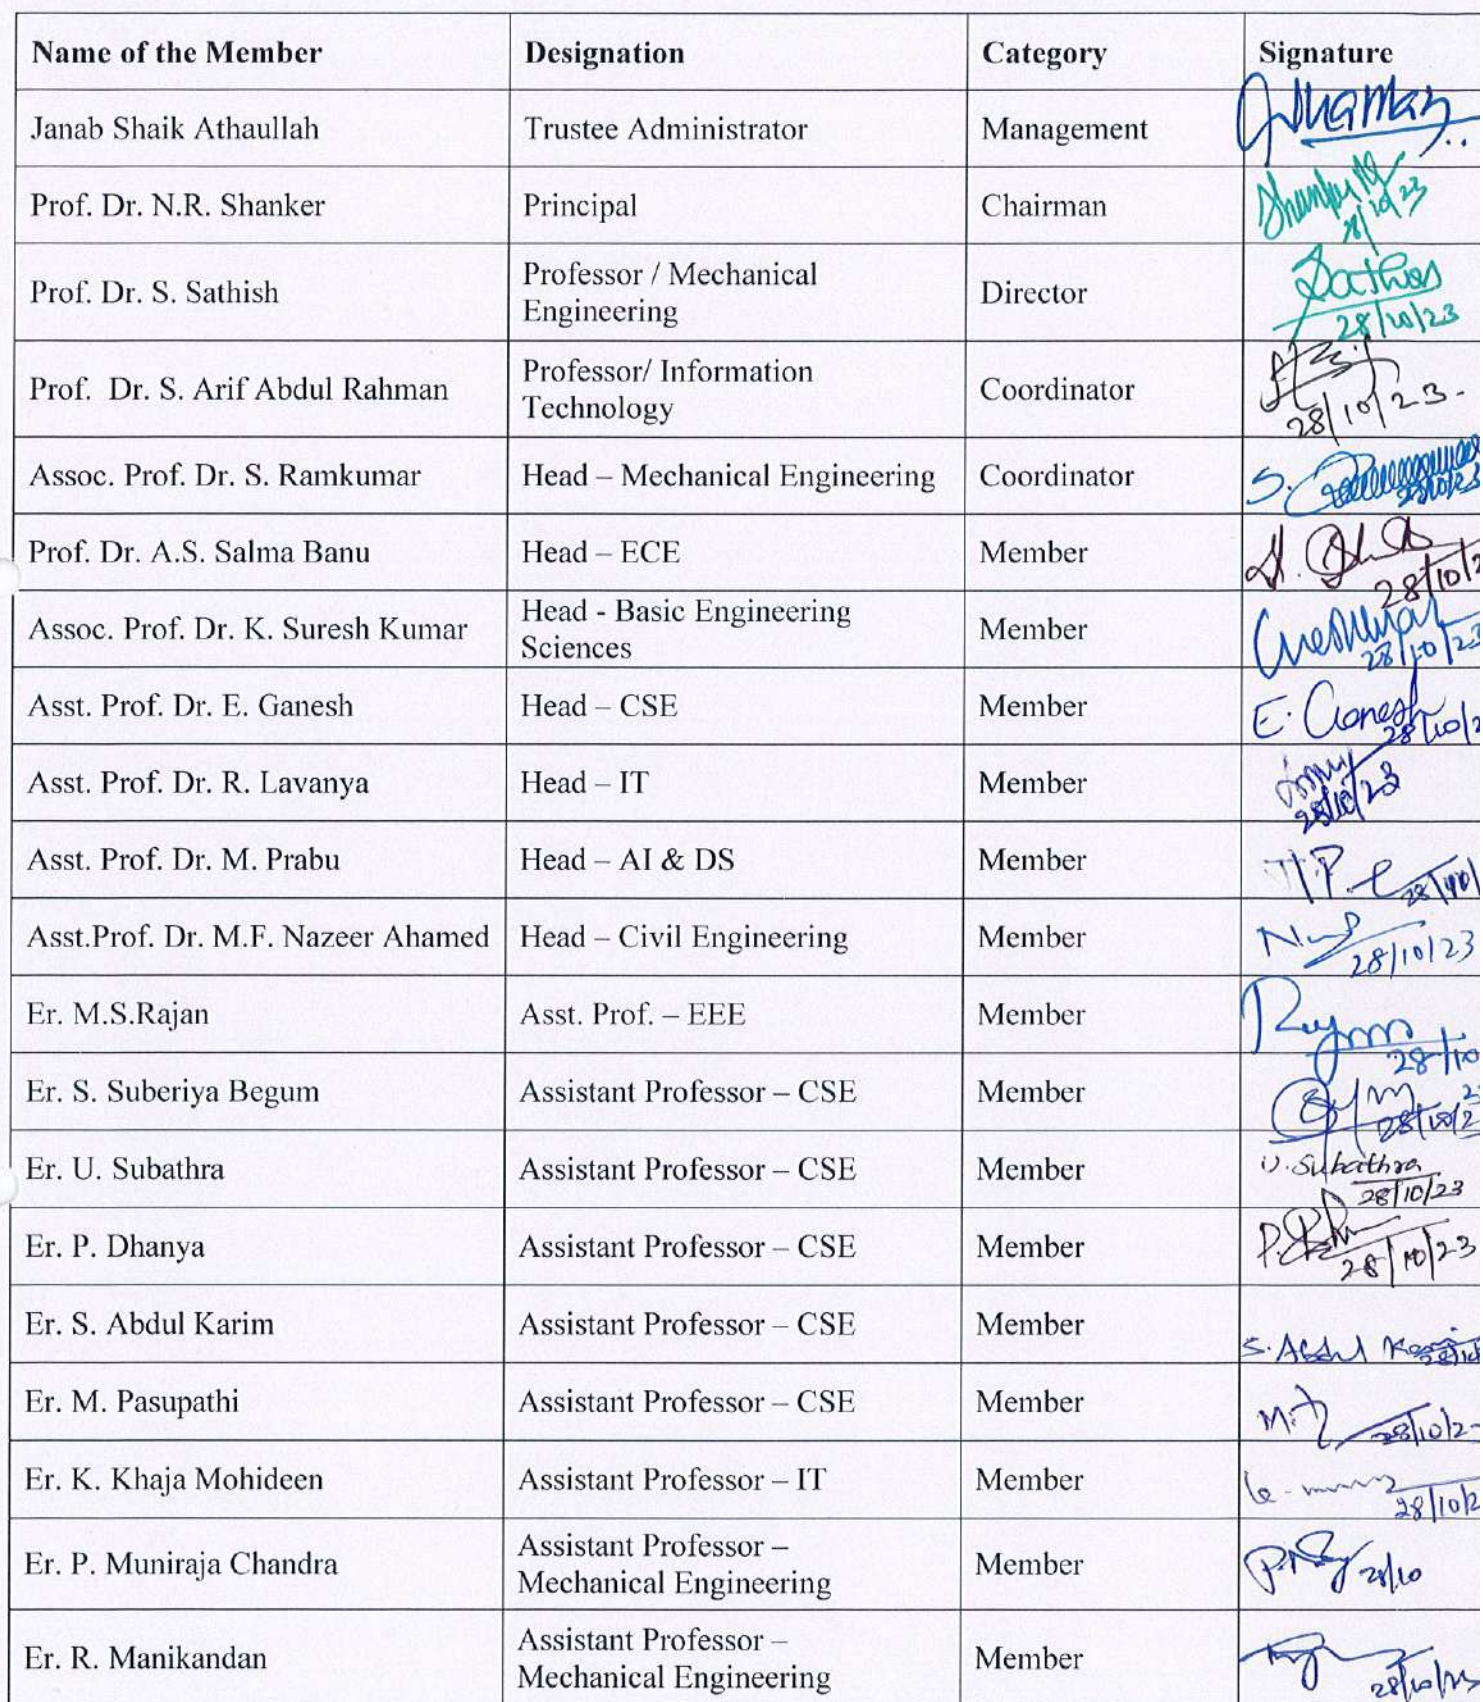 Name of the Member Designation Category Signature
Janab Shaik Athaullah Trustee Administrator Management
Prof. Dr. N.R. Shanker Principal Chairman
28/10/23
Prof. Dr. S. Sathish Professor / Mechanical
Engineering Director
28/10/23
Prof. Dr. S. Arif Abdul Rahman Professor/ Information
Technology Coordinator
28/10/23
Assoc. Prof. Dr. S. Ramkumar Head – Mechanical Engineering Coordinator S.
Prof. Dr. A.S. Salma Banu Head – ECE Member
28/10/2
Assoc. Prof. Dr. K. Suresh Kumar Head - Basic Engineering
Sciences Member
28/10/23
Asst. Prof. Dr. E. Ganesh Head – CSE Member E. Ganesh
28/10/2
Asst. Prof. Dr. R. Lavanya Head – IT Member
28/10/23
Asst. Prof. Dr. M. Prabu Head – AI & DS Member
28/10/
Asst.Prof. Dr. M.F. Nazeer Ahamed Head – Civil Engineering Member
28/10/23
Er. M.S.Rajan Asst. Prof. – EEE Member
28/10
Er. S. Suberiya Begum Assistant Professor – CSE Member
28/10/2
Er. U. Subathra Assistant Professor – CSE Member U. Subathra
28/10/23
Er. P. Dhanya Assistant Professor – CSE Member
28/10/23
Er. S. Abdul Karim Assistant Professor – CSE Member S. Abdul
Er. M. Pasupathi Assistant Professor – CSE Member
28/10/2
Er. K. Khaja Mohideen Assistant Professor – IT Member
28/10/2
Er. P. Muniraja Chandra Assistant Professor –
Mechanical Engineering Member
28/10
Er. R. Manikandan Assistant Professor –
Mechanical Engineering Member
28/10/23